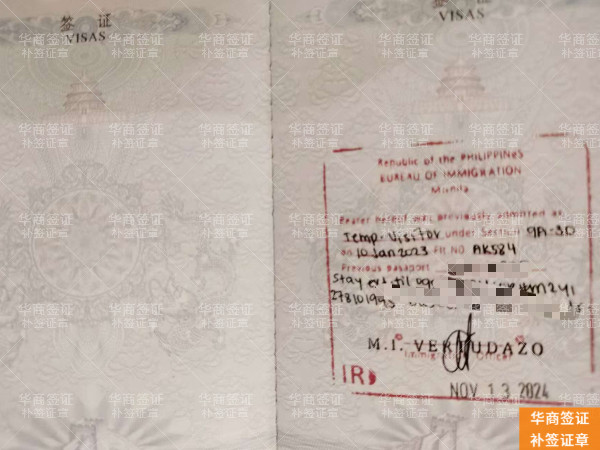 签 证
VISAS
签 证
VISAS
Republic of the PHILIPPINES
BUREAU OF IMMIGRATION
Manila
Bearer hereof was previously admitted as
Temp. Visitor under Section 9A-30
on 10 Jan 2023 Flt NO AK584
Previous passport
Stay
M.I. VERMUDAZO
Immigration Officer
IRD
NOV 13 2024
华商签证
补签证章